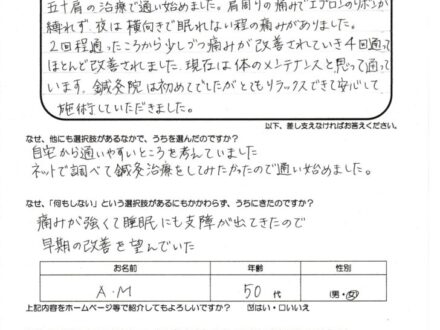 五十肩の治療で通い始めました。肩周りの痛みでエプロンのリボンが
縛れず、夜は横向きで眠れない程の痛みがありました。
2回程通ったころから少しづつ痛みが改善されていき4回通って
ほとんど改善されました。現在は体のメンテナンスと思って通って
います。鍼灸院は初めてでしたがとてもリラックスできて安心して
施術していただきました。
以下、差し支えなければお答えください。
なぜ、他にも選択肢があるなかで、うちを選んだのですか?
自宅から通いやすいところを考えていました
ネットで調べて鍼灸治療をしてみたかったので通い始めました。
なぜ、「何もしない」という選択肢があるにもかかわらず、うちにきたのですか?
痛みが強くて睡眠にも支障が出てきたので
早期の改善を望んでいた
お名前 年齢 性別
A.M 50代 (男・女)
上記内容をホームページ等で紹介してもよろしいですか? ☑はい・□いいえ